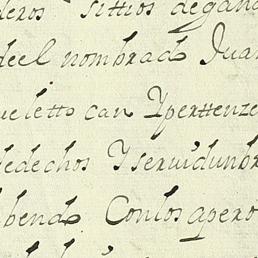 deros sittios de gana
deel nombrado Juan
ue letto can Yperttenze
edechos Y seruidunbr
bendo Conlos apero